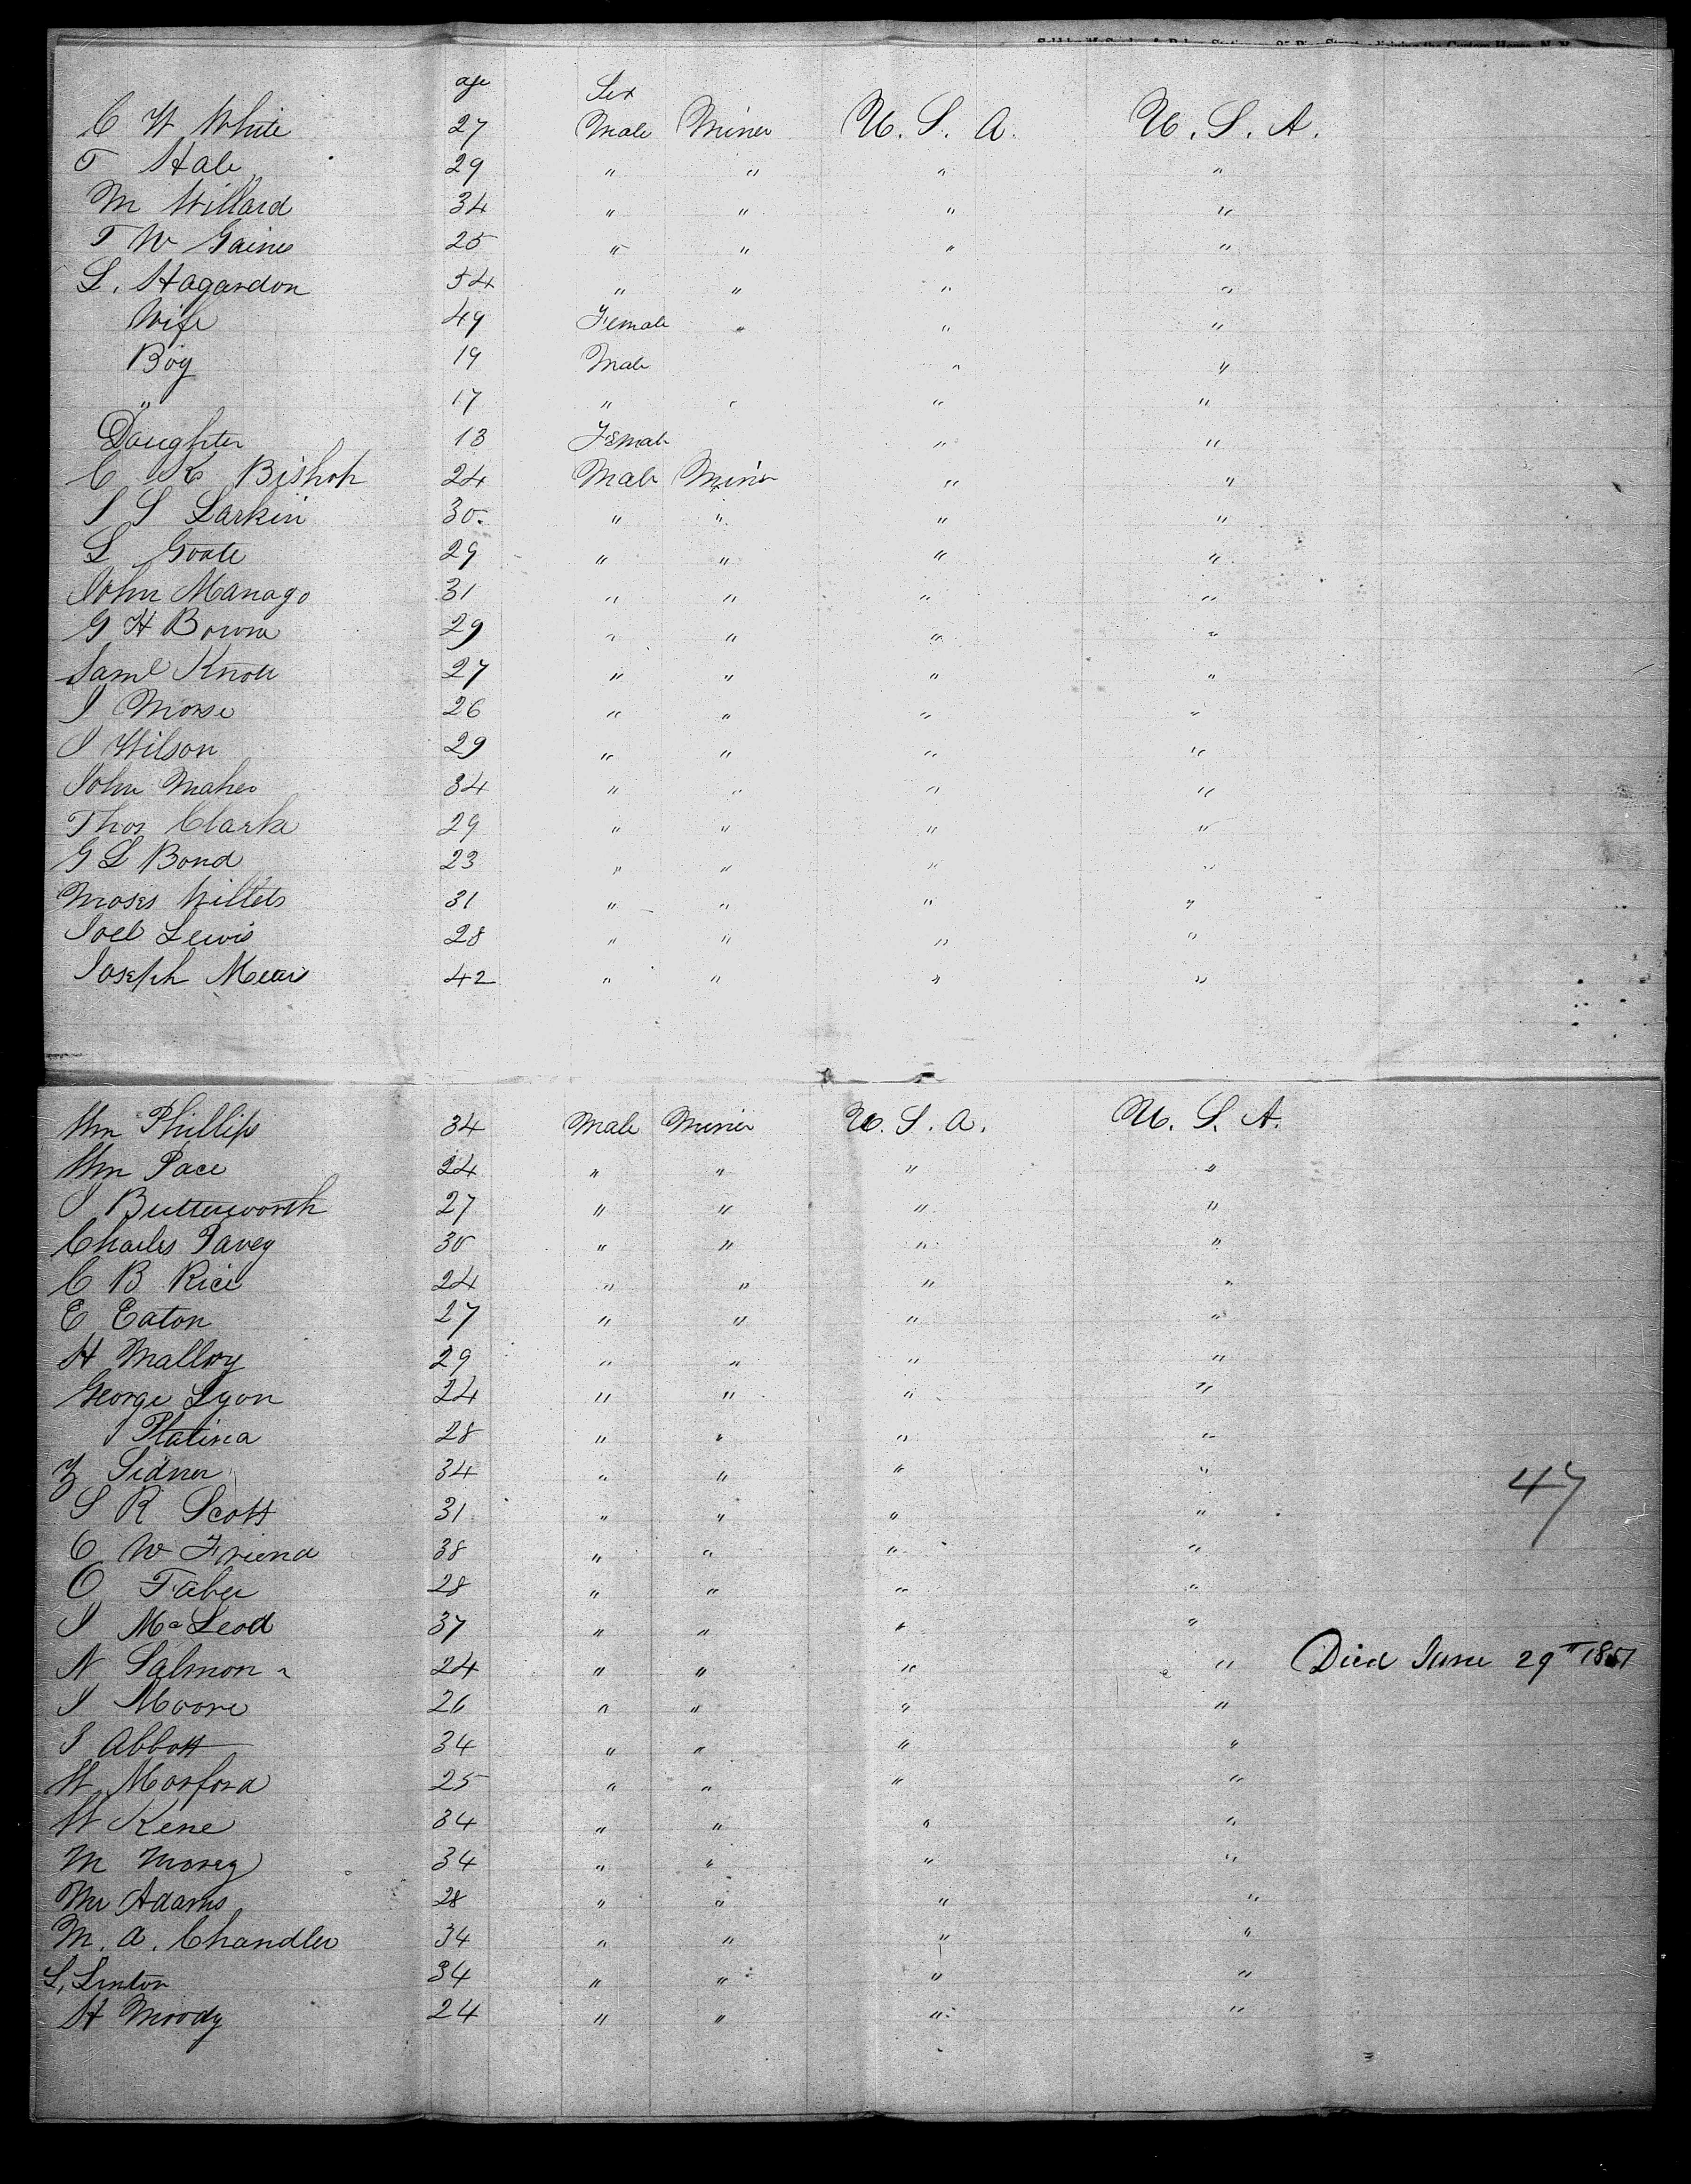 age Sex
C W White 27 Male Miner U. S. A. U. S. A.
T Hale 29 " " " "
M Willard 34 " " " "
T W Gaines 25 " " " "
L. Hagardon 54 " " " "
Wife 49 Female " " "
Boy 19 Male " "
" 17 " " " "
Daughter 13 Female " "
C K Bishop 24 Male Miner " "
S S Larkin 30. " " " "
L 29 " " " "
John Manago 31 " " " "
G H Bown 29 " " " "
Saml Knott 27 " " " "
J Morse 26 " " " "
J Wilson 29 " " " "
John Maher 34 " " " "
Thos Clarke 29 " " " "
G L Bond 23 " " " "
Moses Willets 31 " " " "
Joel Lewis 28 " " " "
Joseph Mears 42 " " " "
Wm Phillips 34 Male Miner U. S. A. U. S. A.
Wm Pace 24 " " " "
J Butterworth 27 " " " "
Charles Pavey 30 " " " "
C B Rice 24 " " " "
E Eaton 27 " " " "
H Mallory 29 " " " "
George Lyon 24 " " " "
J Platina 28 " " " "
Z Sidner 34 " " " "
47
S R Scott 31 " " " "
C W Friend 38 " " " "
O Faber 28 " " " "
J McLeod 37 " " " "
N Salmon 24 " " " " Died June 29" 1851
J Moore 26 " " " "
S Abbott 34 " " " "
W Morford 25 " " " "
W Kene 34 " " " "
M Morey 34 " " " "
Mr Adams 28 " " " "
M. A. Chandler 34 " " " "
L. Linton 34 " " " "
H Moody 24 " " " "